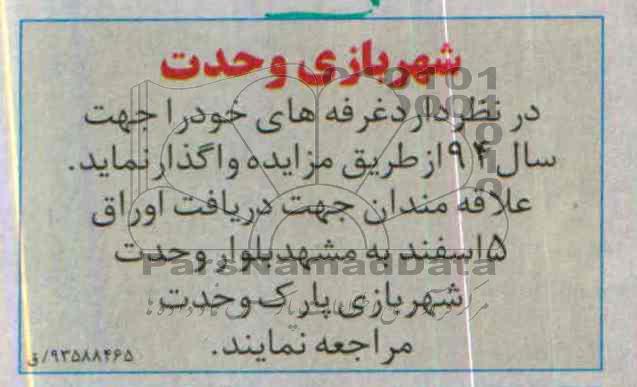 شهربازی وحدت
در نظر دارد غرفه های خود را جهت
سال ۹۴ از طریق مزایده واگذار نماید.
علاقه مندان جهت دریافت اوراق
۵ اسفند به مشهد بلوار وحدت
ParsNamadData
شهربازی پارک وحدت
مراجعه نمایند.
۹۳۵۸۸۴۶۵/ق